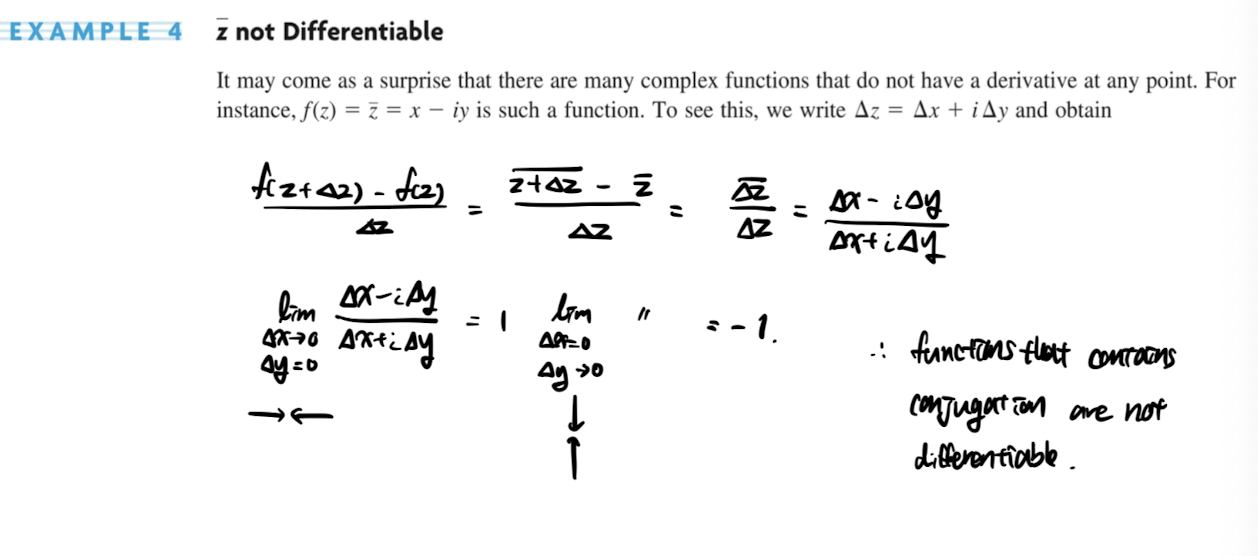 EXAMPLE 4 z̅ not Differentiable
It may come as a surprise that there are many complex functions that do not have a derivative at any point. For
instance, f(z) = z̅ = x − iy is such a function. To see this, we write Δz = Δx + iΔy and obtain
(f(z+Δz) - f(z))/Δz = (z̅+̅Δ̅z̅ - z̅)/Δz = Δ̅z̅/Δz = (Δx - iΔy)/(Δx+iΔy)
lim Δx→0 Δy=0 (Δx-iΔy)/(Δx+iΔy) = 1 lim Δx=0 Δy→0 〃 = -1.
→←
↓
↑
∴ functions that contains
conjugation are not
differentiable.